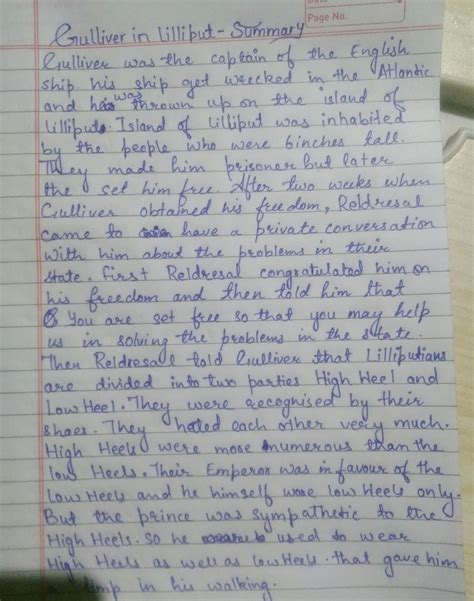 Page No.
Gulliver in Lilliput - Summary
Gulliver was the captain of the English
ship. his ship get wrecked in the Atlantic
and he was thrown up on the island of
Lilliput. Island of Lilliput was inhabited
by the people who were 6inches tall.
They made him prisoner but later
the set him free. After two weeks when
Gulliver obtained his freedom, Reldresal
came to have a private conversation
with him about the problems in their
state. first Reldresal congratulated him on
his freedom and then told him that
You are set free so that you may help
us in solving the problems in the state.
Then Reldresal told Gulliver that Lilliputians
are divided into two parties High Heel and
Low Heel. They were recognised by their
shoes. They hated each other very much.
High Heels were more numerous than the
low Heels. Their Emperor was in favour of the
Low Heels and he himself wore low Heels only.
But the prince was sympathetic to the
High Heels. So he used to wear
High Heels as well as low Heels. that gave him
a limp in his walking.